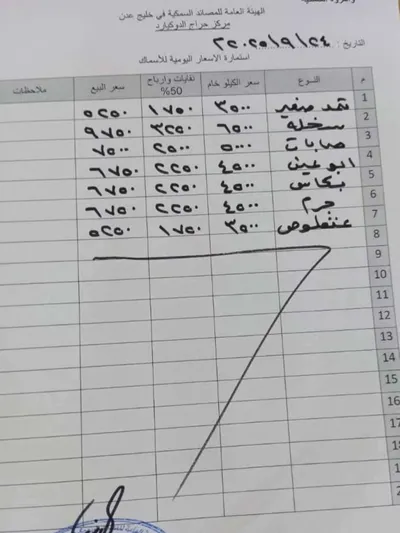 الهيئة العامة للمصائد السمكية في خليج عدن
مركز حراج الدوكيارد
التاريخ : ٢٤/٩/٢٠٢٥م
استمارة الاسعار اليومية للأسماك
م النوع سعر الكيلو خام نفايات وارباح 50% سعر البيع ملاحظات
1 ثمد صغير ٣٥٠٠ ١٧٥٠ ٥٢٥٠
2 سخله ٦٥٠٠ ٣٢٥٠ ٩٧٥٠
3 صابات ٥٠٠٠ ٢٥٠٠ ٧٥٠٠
4 ابو عين ٤٥٠٠ ٢٢٥٠ ٦٧٥٠
5 بكاس ٤٥٠٠ ٢٢٥٠ ٦٧٥٠
6 جرم ٤٥٠٠ ٢٢٥٠ ٦٧٥٠
7 عنفلوص ٣٥٠٠ ١٧٥٠ ٥٢٥٠
8
9
10
11
12
13
14
15
16
17
18